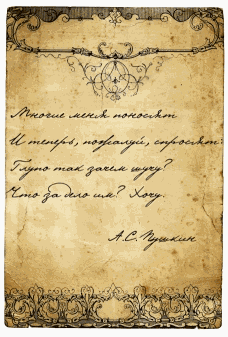 Многие меня поносят
И теперь, пожалуй, спросят:
Глупо так зачем шучу?
Что за дело им? Хочу.
А.С. Пушкин